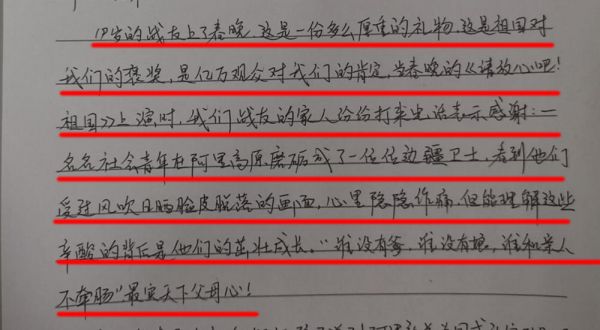 19岁的战友上了春晚,这是一份多么厚重的礼物,这是祖国对
我们的褒奖,是亿万观众对我们的肯定,当春晚的《请放心吧!
祖国》上演时,我们战友的家人纷纷打来电话表示感谢:一
名名社会青年在阿里高原磨砺成了一位位边疆卫士,看到他们
受过风吹日晒脸皮脱落的画面,心里隐隐作痛,但能理解这些
辛酸的背后是他们的茁壮成长。"谁没有爹,谁没有娘,谁和亲人
不牵肠"最灾天下父母心!